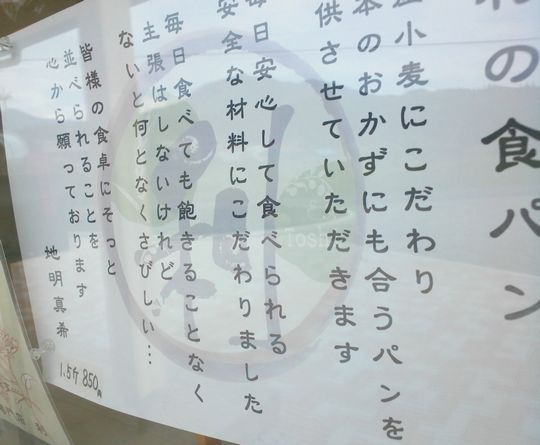 の食パン
小麦にこだわり
本のおかずにも合うパンを
供させていただきます
毎日安心して食べられる
安全な材料にこだわりました
毎日食べても飽きることなく
主張はしないけれど
ないと何となくさびしい…
皆様の食卓にそっと
並べられることを
心から願っております
地明真希
1.5斤 850円
Tosh